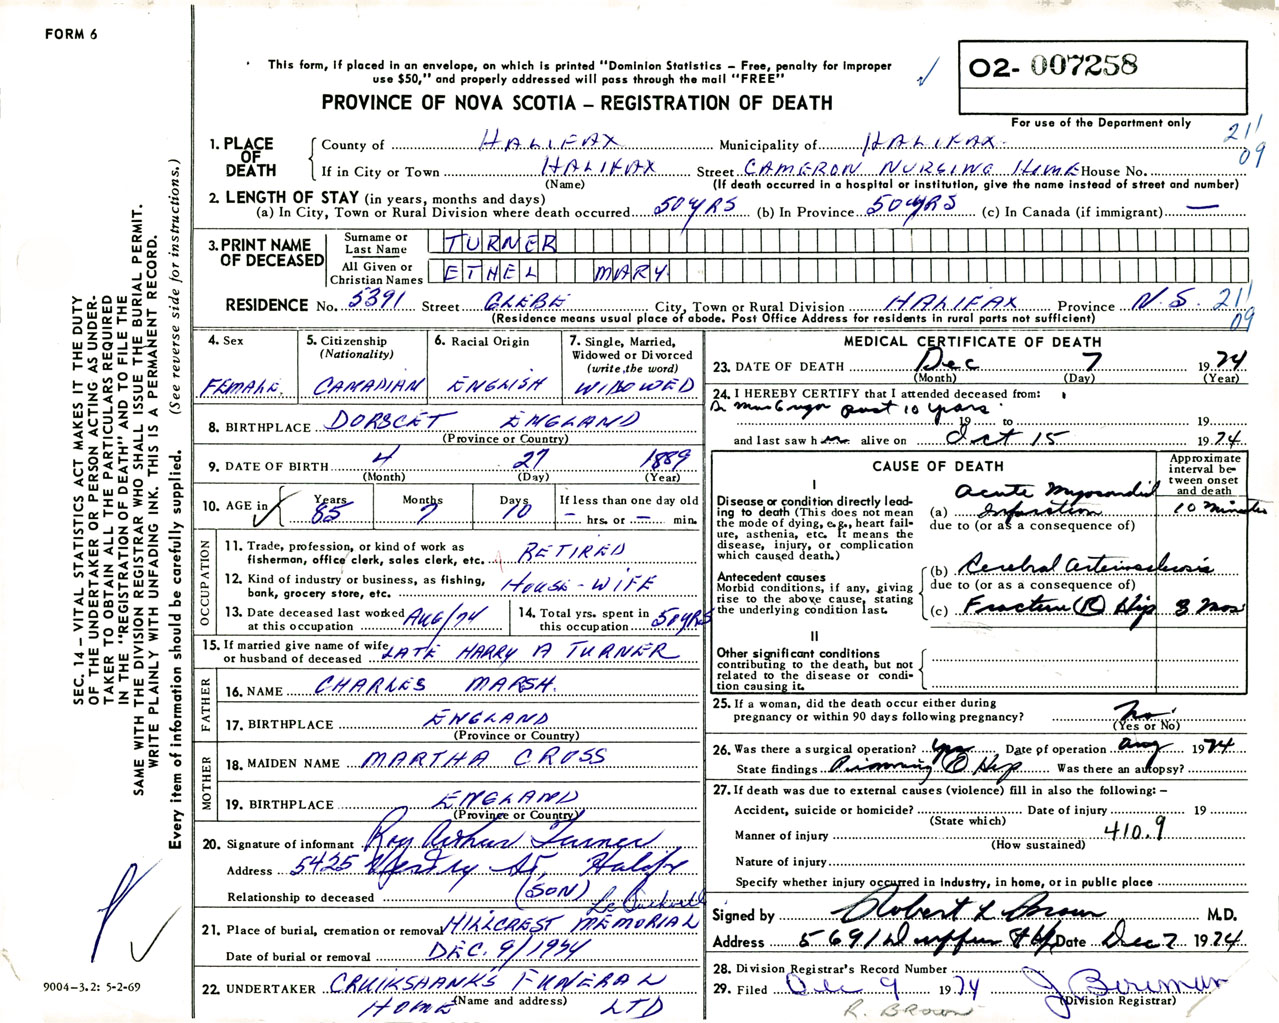 FORM 6
This form, if placed in an envelope, on which is printed "Dominion Statistics – Free, penalty for improper
use $50," and properly addressed will pass through the mail "FREE"
PROVINCE OF NOVA SCOTIA – REGISTRATION OF DEATH
02- 007258
For use of the Department only
1. PLACE OF DEATH
County of HALIFAX Municipality of HALIFAX 211
If in City or Town HALIFAX Street CAMERON NURSING HOME House No. 09
(Name) (If death occurred in a hospital or institution, give the name instead of street and number)
2. LENGTH OF STAY (in years, months and days)
(a) In City, Town or Rural Division where death occurred 50 YRS (b) In Province 50 YRS (c) In Canada (if immigrant) —
3. PRINT NAME OF DECEASED
Surname or Last Name TURNER
All Given or Christian Names ETHEL MARY
RESIDENCE No. 5391 Street GLEBE City, Town or Rural Division HALIFAX Province N.S. 211
(Residence means usual place of abode. Post Office Address for residents in rural parts not sufficient) 09
4. Sex FEMALE
5. Citizenship (Nationality) CANADIAN
6. Racial Origin ENGLISH
7. Single, Married, Widowed or Divorced (write the word) WIDOWED
8. BIRTHPLACE DORSCET ENGLAND
(Province or Country)
9. DATE OF BIRTH 4 27 1889
(Month) (Day) (Year)
10. AGE in Years 85 Months 7 Days 10 If less than one day old
– hrs. or – min.
OCCUPATION
11. Trade, profession, or kind of work as fisherman, office clerk, sales clerk, etc. RETIRED
12. Kind of industry or business, as fishing, bank, grocery store, etc. HOUSE-WIFE
13. Date deceased last worked at this occupation AUG/74
14. Total yrs. spent in this occupation 50 YRS
15. If married give name of wife or husband of deceased LATE HARRY A TURNER
FATHER
16. NAME CHARLES MARSH.
17. BIRTHPLACE ENGLAND
(Province or Country)
MOTHER
18. MAIDEN NAME MARTHA CROSS
19. BIRTHPLACE ENGLAND
(Province or Country)
20. Signature of informant Roy Arthur Turner
Address 5425 St, Halifx
Relationship to deceased (SON)
21. Place of burial, cremation or removal HILLCREST MEMORIAL
Date of burial or removal DEC. 9/1974
22. UNDERTAKER CRUIKSHANKS FUNERAL
HOME (Name and address) LTD
MEDICAL CERTIFICATE OF DEATH
23. DATE OF DEATH Dec 7 1974
(Month) (Day) (Year)
24. I HEREBY CERTIFY that I attended deceased from:
past 10 years
19 to 19
and last saw h alive on Oct 15 1974
CAUSE OF DEATH
Approximate interval between onset and death
I
Disease or condition directly leading to death (This does not mean the mode of dying, e.g., heart failure, asthenia, etc. It means the disease, injury, or complication which caused death.)
(a) Acute Myocardial Infarction 10 Minutes
due to (or as a consequence of)
Antecedent causes
Morbid conditions, if any, giving rise to the above cause, stating the underlying condition last.
(b) Cerebral arteriosclerosis
due to (or as a consequence of)
(c) Fracture (R) Hip 3 Mos
II
Other significant conditions
contributing to the death, but not related to the disease or condition causing it.
25. If a woman, did the death occur either during
pregnancy or within 90 days following pregnancy? No
(Yes or No)
26. Was there a surgical operation? yes Date of operation Aug 1974
State findings Pinning (R) Hip Was there an autopsy?
27. If death was due to external causes (violence) fill in also the following: –
Accident, suicide or homicide? Date of injury 19
(State which)
Manner of injury 410.9
(How sustained)
Nature of injury
Specify whether injury occurred in Industry, in home, or in public place
Signed by Robert L Brown M.D.
Address 5691 Date Dec 7 1974
28. Division Registrar's Record Number
29. Filed Dec 9 1974
(Division Registrar)
R. BROWN
SEC. 14 – VITAL STATISTICS ACT MAKES IT THE DUTY
OF THE UNDERTAKER OR PERSON ACTING AS UNDER-
TAKER TO OBTAIN ALL THE PARTICULARS REQUIRED
IN THE "REGISTRATION OF DEATH" AND TO FILE THE
SAME WITH THE DIVISION REGISTRAR WHO SHALL ISSUE THE BURIAL PERMIT.
WRITE PLAINLY WITH UNFADING INK. THIS IS A PERMANENT RECORD.
Every item of information should be carefully supplied. (See reverse side for instructions.)
9004-3.2: 5-2-69